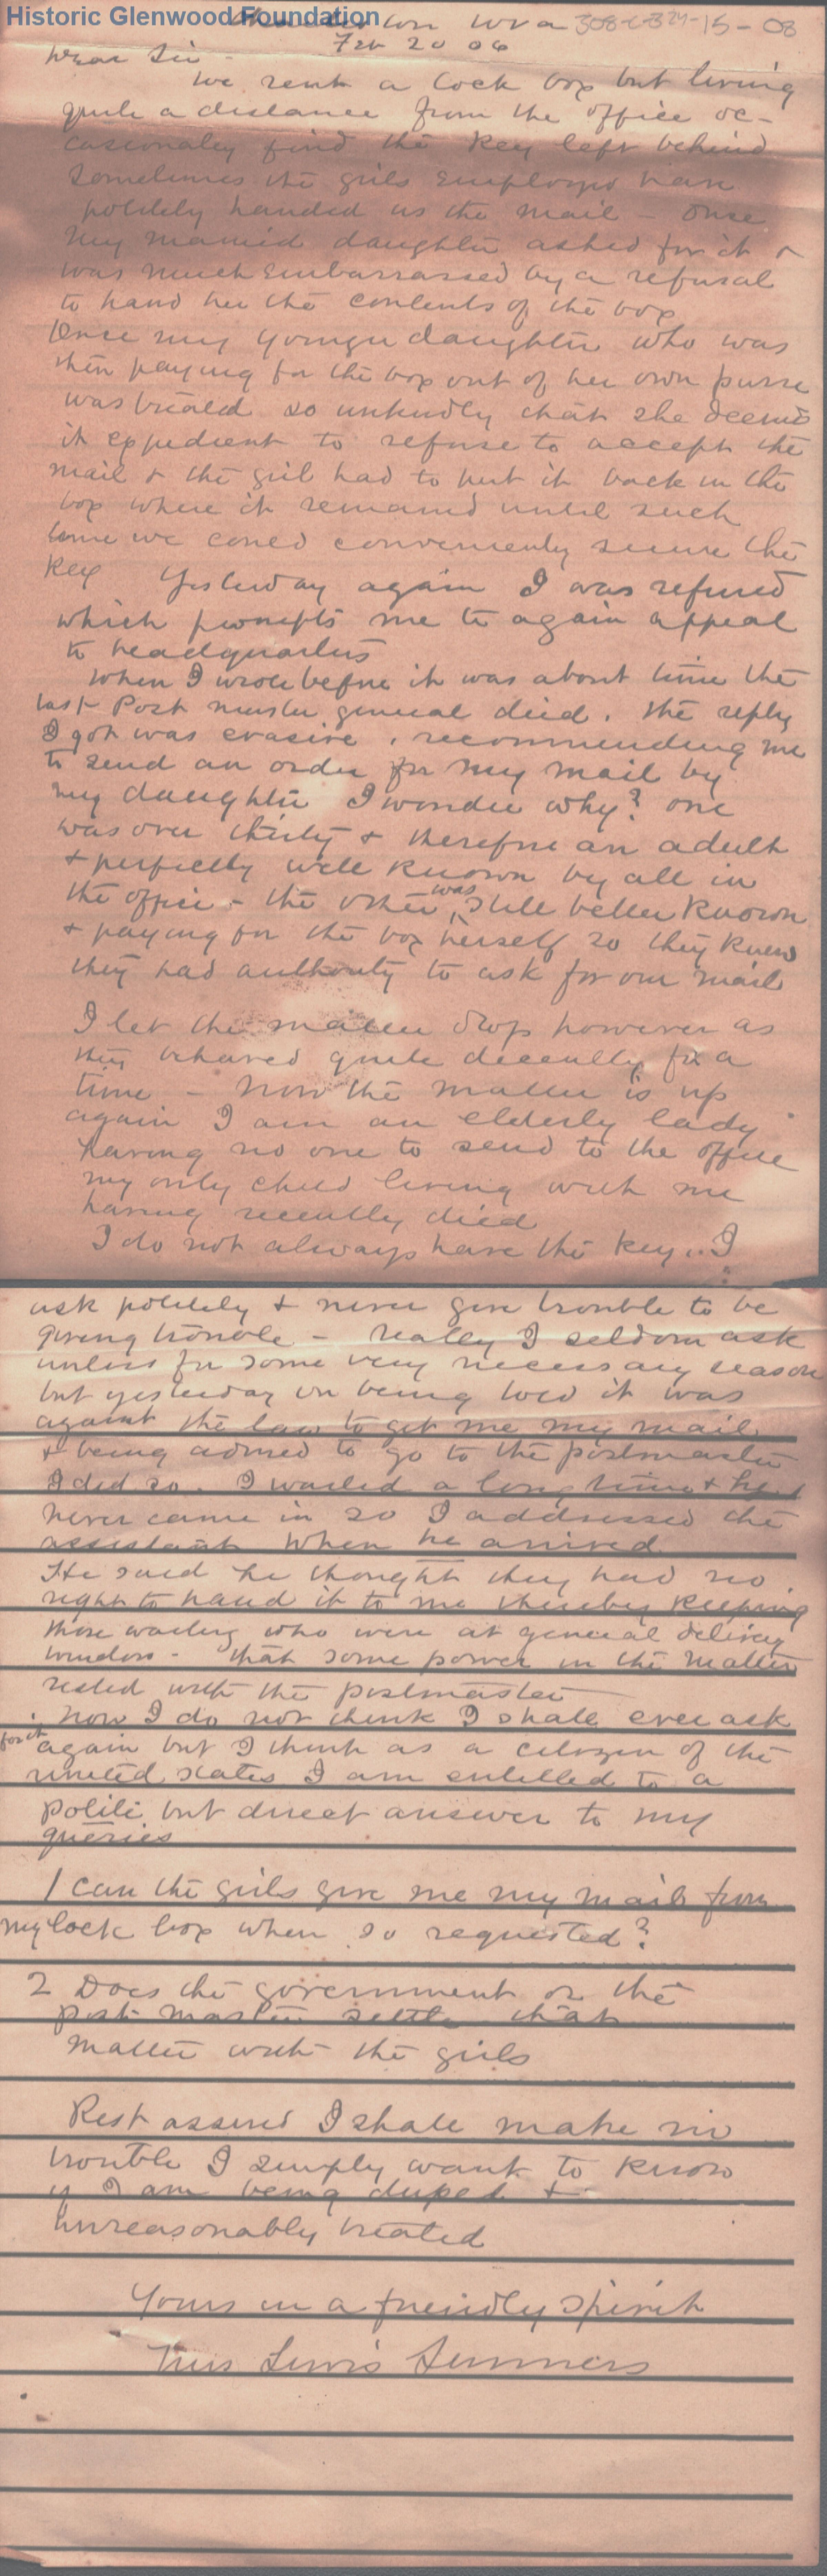 Historic Glenwood Foundation
W Va 308-C-B24-15-08
Feb 20 06
Dear Sir
We rent a lock box but living
quite a distance from the office oc-
casionaley find the key left behind
Sometimes the girls employed have
politely handed us the mail - Once
My married daughter asked for it &
was much embarrassed by a refusal
to hand her the contents of the box
Once my younger daughter who was
then paying for the box out of her own purse
was treated so unkindly that she deemed
it expedient to refuse to accept the
mail & the girl had to put it back in the
box where it remained until such
time we could conveniently secure the
key Yesterday again I was refused
which prompts me to again appeal
to headquarters
When I wrote before it was about time the
last Post master general died. The reply
I got was evasive, recommending me
to send an order for my mail by
my daughter I wonder why? one
was over thirty & therefore an adult
& perfectly well known by all in
the office - the other was still better known
& paying for the box herself so they knew
they had authority to ask for our mail
I let the matter drop however as
they behaved quite decently for a
time - Now the matter is up
again I am an elderly lady
having no one to send to the office
my only child living with me
having recently died
I do not always have the key... I
ask politely & never give trouble to be
giving trouble - Really I seldom ask
unless for some very necessary reason
but yesterday on being told it was
against the law to get me my mail
& being advised to go to the postmaster
I did so. I waited a long time & he
never came in so I addressed the
assistant when he arrived
He said he thought they had no
right to hand it to me thereby keeping
those waiting who were at general delivery
window - that some power in the matter
rested with the postmaster
Now I do not think I shall ever ask
for it again but I think as a citizen of the
united states I am entitled to a
polite but direct answer to my
queries
1 Can the girls give me my mail from
my lock box when so requested?
2 Does the government or the
post master settle that
matter with the girls
Rest assured I shall make no
trouble I simply want to know
if I am being duped &
unreasonably treated
Yours in a friendly spirit
Mrs Lewis Summers